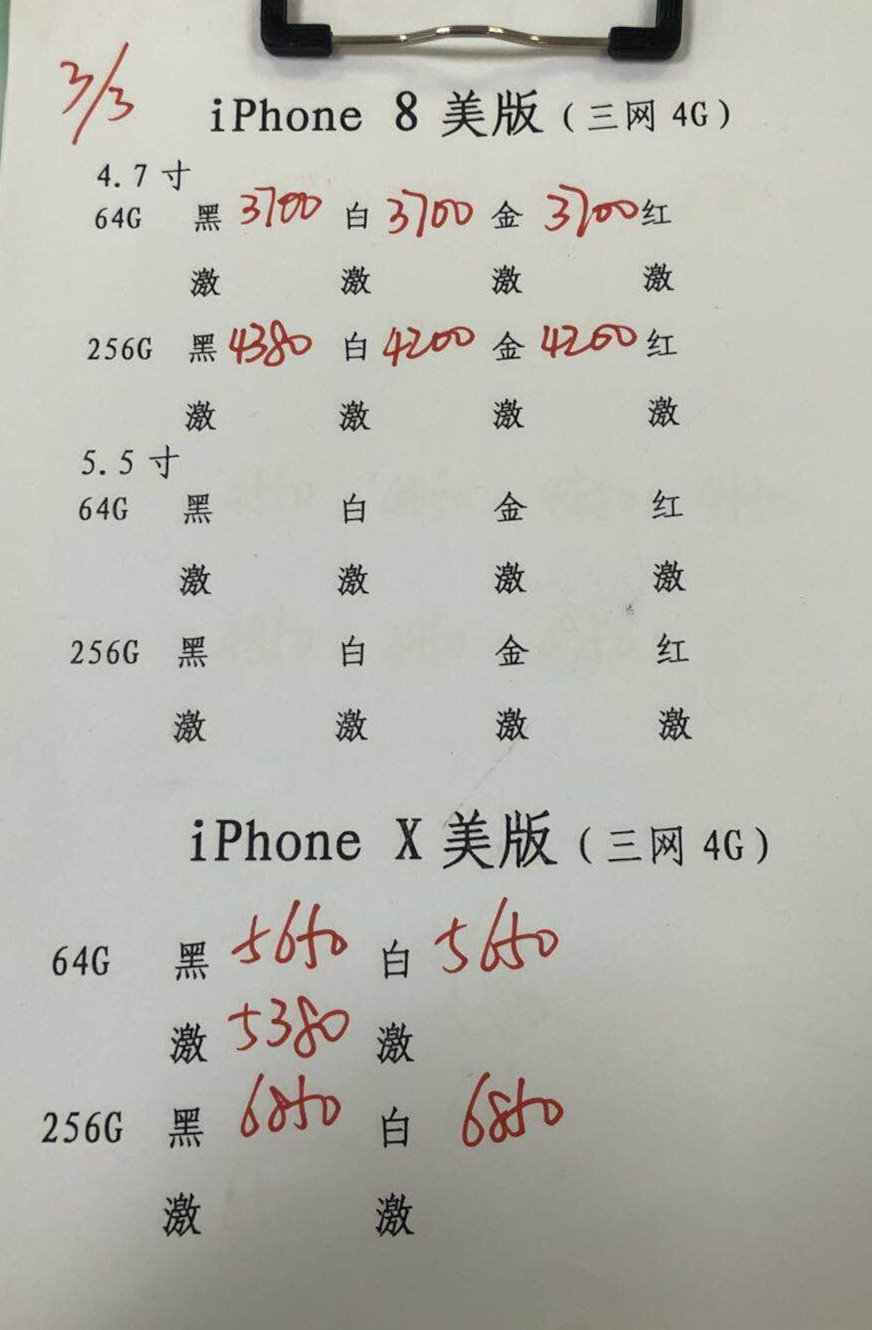 3/3
iPhone 8 美版（三网 4G）
4.7 寸
64G 黑 3700 白 3700 金 3700 红
激 激 激 激
256G 黑 4380 白 4200 金 4200 红
激 激 激 激
5.5 寸
64G 黑 白 金 红
激 激 激 激
256G 黑 白 金 红
激 激 激 激
iPhone X 美版（三网 4G）
64G 黑 5650 白 5650
激 5380 激
256G 黑 6850 白 6850
激 激